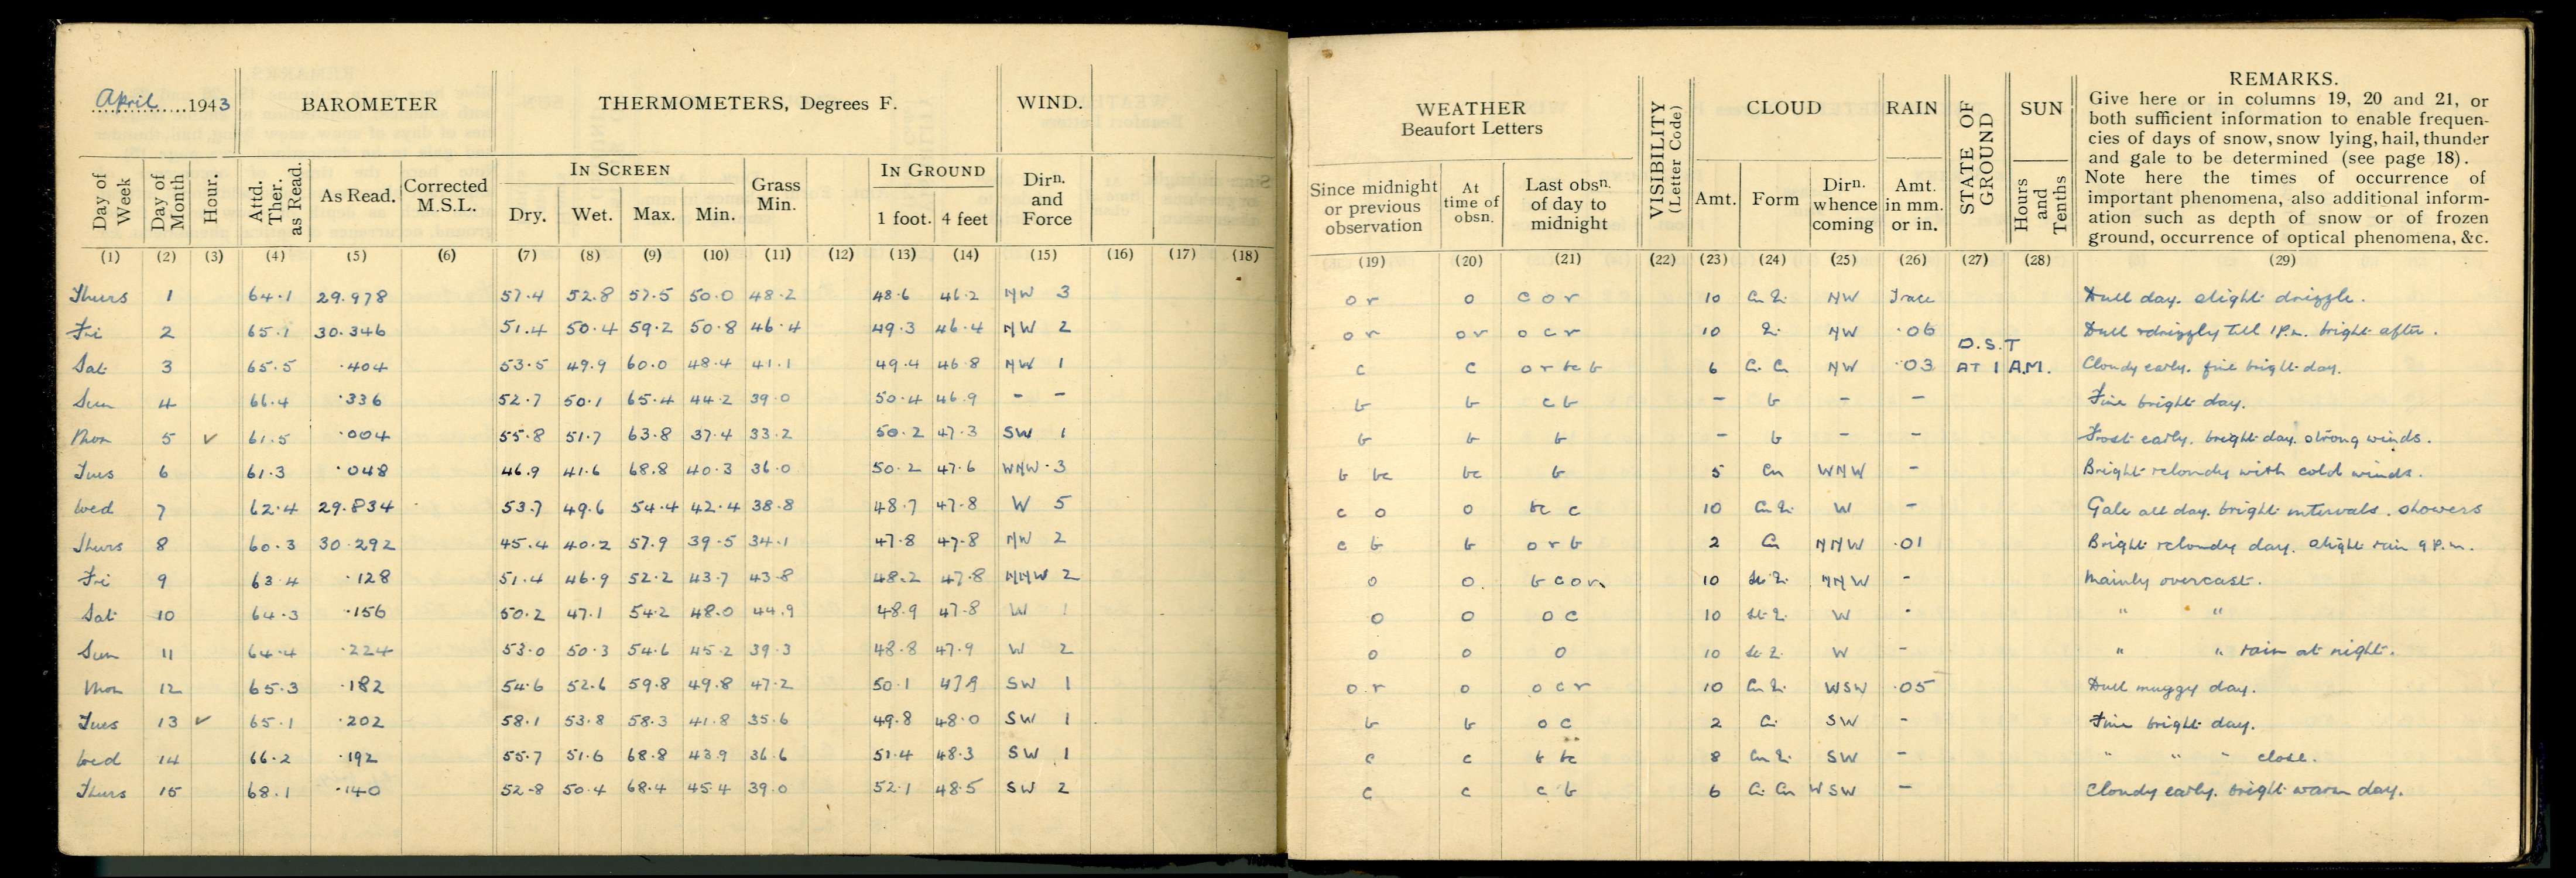 April 1943 BAROMETER THERMOMETERS, Degrees F. WIND. WEATHER Beaufort Letters VISIBILITY (Letter Code) CLOUD RAIN STATE OF GROUND SUN REMARKS.
Give here or in columns 19, 20 and 21, or
both sufficient information to enable frequen-
cies of days of snow, snow lying, hail, thunder
and gale to be determined (see page 18).
Note here the times of occurrence of
important phenomena, also additional inform-
ation such as depth of snow or of frozen
ground, occurrence of optical phenomena, &c.
Day of Week Day of Month Hour. Attd. Ther. as Read. As Read. Corrected M.S.L. IN SCREEN Dry. Wet. Max. Min. Grass Min. IN GROUND 1 foot. 4 feet Dirn. and Force Since midnight or previous observation At time of obsn. Last obsn. of day to midnight Amt. Form Dirn. whence coming Amt. in mm. or in. Hours and Tenths
(1) (2) (3) (4) (5) (6) (7) (8) (9) (10) (11) (12) (13) (14) (15) (16) (17) (18) (19) (20) (21) (22) (23) (24) (25) (26) (27) (28) (29)
Thurs 1 64.1 29.978 57.4 52.8 57.5 50.0 48.2 48.6 46.2 NW 3 o r o c o r 10 NW Trace Dull day. slight drizzle.
Fri 2 65.1 30.346 51.4 50.4 59.2 50.8 46.4 49.3 46.4 NW 2 o r o r o c r 10 NW .06 Dull & drizzly till 1 P.m. bright after.
D.S.T
Sat 3 65.5 .404 53.5 49.9 60.0 48.4 41.1 49.4 46.8 NW 1 c c o r bc b 6 NW .03 AT 1 A.M. Cloudy early. fine bright day.
Sun 4 66.4 .336 52.7 50.1 65.4 44.2 39.0 50.4 46.9 - - b b c b - b - - Fine bright day.
Mon 5 ✓ 61.5 .004 55.8 51.7 63.8 37.4 33.2 50.2 47.3 SW 1 b b b - b - - Frost early. bright day. strong winds.
Tues 6 61.3 .048 46.9 41.6 68.8 40.3 36.0 50.2 47.6 WNW 3 b bc bc b 5 Cu WNW - Bright & cloudy with cold winds.
Wed 7 62.4 29.834 53.7 49.6 54.4 42.4 38.8 48.7 47.8 W 5 c o o bc c 10 W - Gale all day. bright intervals. showers
Thurs 8 60.3 30.292 45.4 40.2 57.9 39.5 34.1 47.8 47.8 NW 2 c b b o r b 2 Cu NNW .01 Bright & cloudy day. slight rain 9 P.m.
Fri 9 63.4 .128 51.4 46.9 52.2 43.7 43.8 48.2 47.8 NNW 2 o o. b c o 10 NNW - Mainly overcast.
Sat 10 64.3 .156 50.2 47.1 54.2 48.0 44.9 48.9 47.8 W 1 o o o c 10 W - " "
Sun 11 64.4 .224 53.0 50.3 54.6 45.2 39.3 48.8 47.9 W 2 o o o 10 W - " " rain at night.
Mon 12 65.3 .182 54.6 52.6 59.8 49.8 47.2 50.1 47.9 SW 1 o r o o c r 10 WSW .05 Dull muggy day.
Tues 13 ✓ 65.1 .202 58.1 53.8 58.3 41.8 35.6 49.8 48.0 SW 1 b b o c 2 Ci SW - Fine bright day.
Wed 14 66.2 .192 55.7 51.6 68.8 43.9 36.6 51.4 48.3 SW 1 c c b bc 8 SW - " " " close.
Thurs 15 68.1 .140 52.8 50.4 68.4 45.4 39.0 52.1 48.5 SW 2 c c c b 6 Ci Cu WSW - Cloudy early. bright warm day.